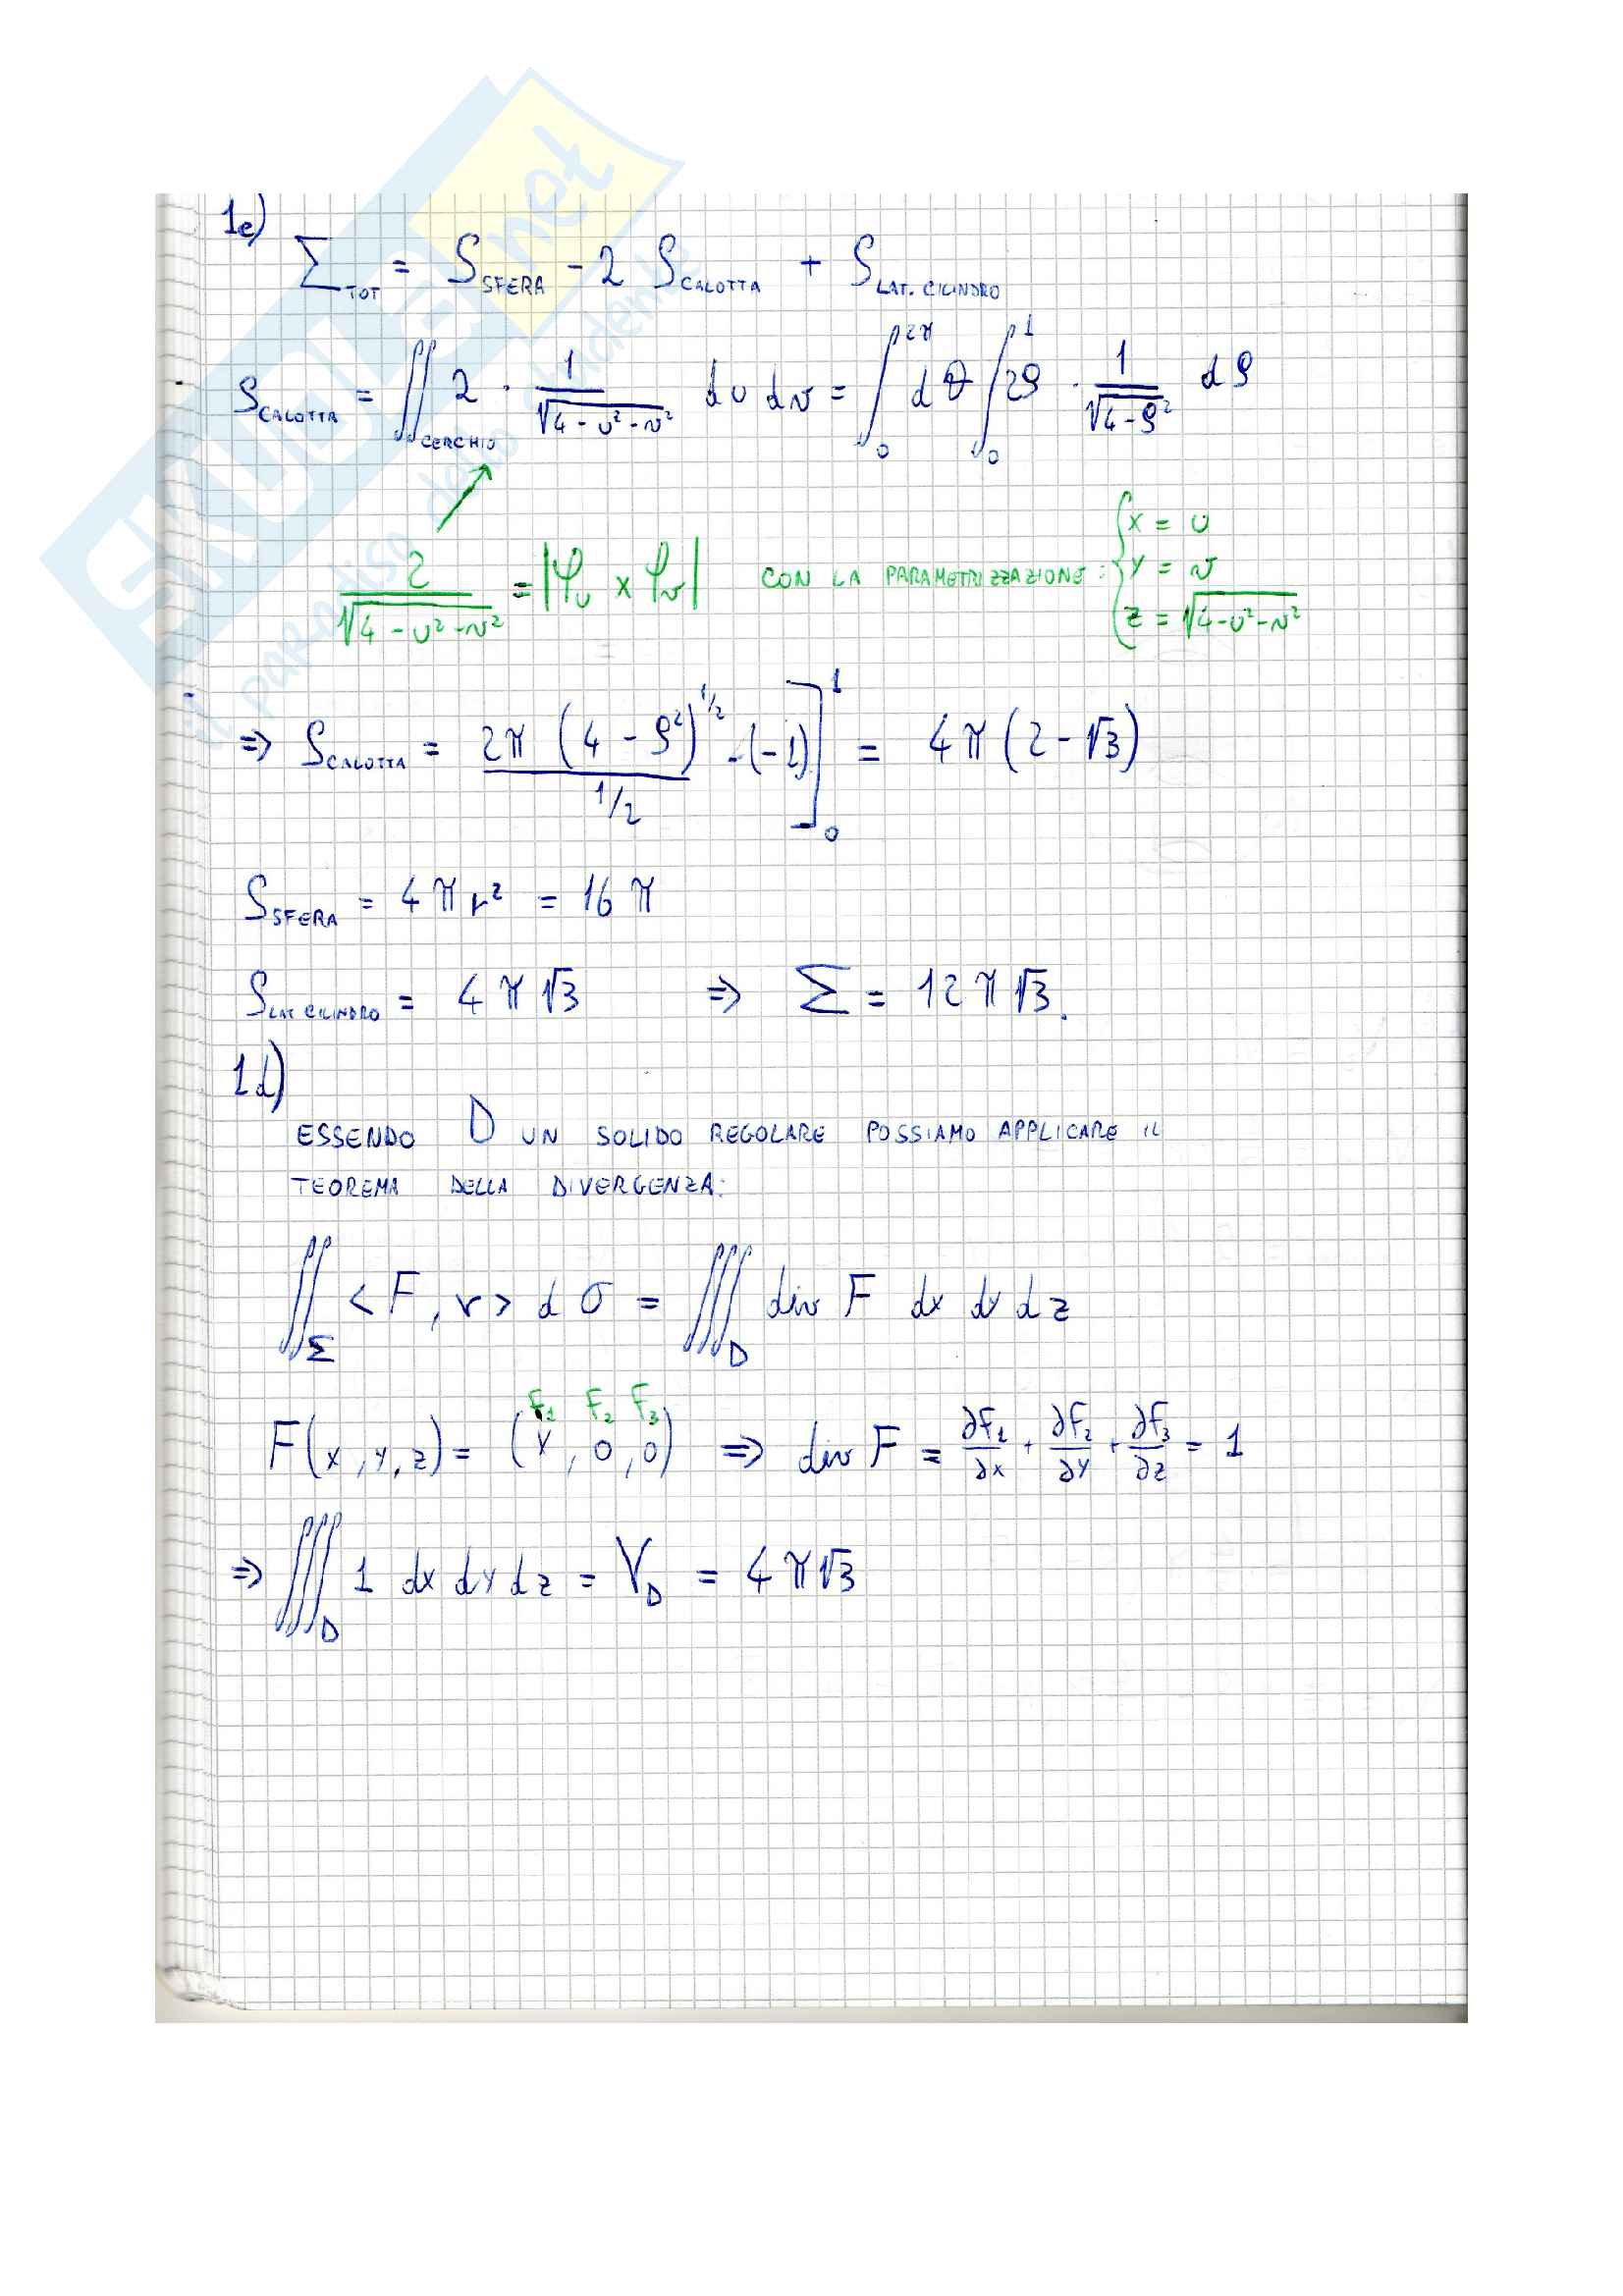 1c)
Σ_TOT = S_SFERA - 2 S_CALOTTA + S_LAT. CILINDRO
S_CALOTTA = ∬_CERCHIO 2 · 1/√(4-u²-v²) du dv = ∫₀^2π dθ ∫₀^1 2ρ · 1/√(4-ρ²) dρ
2/√(4-u²-v²) = |φ_u × φ_v| CON LA PARAMETRIZZAZIONE: { x = u
y = v
z = √(4-u²-v²)
⇒ S_CALOTTA = 2π (4-ρ²)^1/2 / 1/2 · (-1) ]₀^1 = 4π(2-√3)
S_SFERA = 4πr² = 16π
S_LAT CILINDRO = 4π√3 ⇒ Σ = 12π√3.
1d)
ESSENDO D UN SOLIDO REGOLARE POSSIAMO APPLICARE IL
TEOREMA DELLA DIVERGENZA:
∬_Σ <F, ν> dσ = ∭_D div F dx dy dz
F₁ F₂ F₃
F(x,y,z) = (x, 0, 0) ⇒ div F = ∂F₁/∂x + ∂F₂/∂y + ∂F₃/∂z = 1
⇒ ∭_D 1 dx dy dz = V_D = 4π√3
SKUOLA.net
il paradiso dello studente